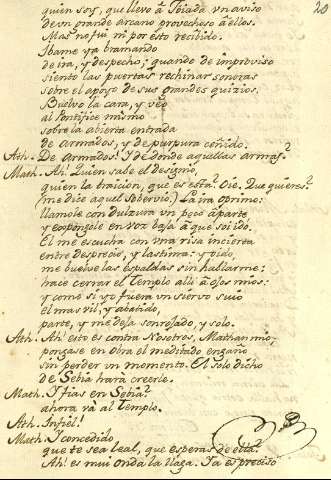 quien soy, que llevo à Joiada un aviso
20
de un grande arcano provechoso à ellos.
Mas no fui ni por esto recibido.
Ibame ya bramando
de ira, y despecho; quando de improviso
siento las puertas rechinar sonoras
sobre el apoyo de sus grandes quizios.
Buelvo la cara, y veo
al Pontifice mismo
sobre la abierta entrada
de armados, y de purpura ceñido.
Ath. De armados! I de donde aquellas armas?
Math. Ah! Quien sabe el designo,
quien la traicion, que es esta? Oie. Que quieres?
(me dice aquel sobervio.) La ira oprimo:
llamole con dulzura un poco à parte,
y expongole en voz baja à què soi ido.
El me escucha con una risa incierta
entre desprecio, y lastima: y oido,
me buelve las espaldas sin hallarme:
hace cerrar el Templo alli à ojos mios:
y como si yo fuera un siervo suio
el mas vil, y abatido,
parte, y me deja sonrojado, y solo.
Ath. Ah! esto es contra Nosotros. Mathan mio,
pongase en obra el meditado engaño
sin perder un momento. El solo dicho
de Sebia harà creerlo.
Math. I fias en Sebia?
ahora và al Templo.
Ath. Infiel!
Math. I concedido
que te sea leal, que esperas de ella?
Ah! es mui onda la llaga. Ia es preciso